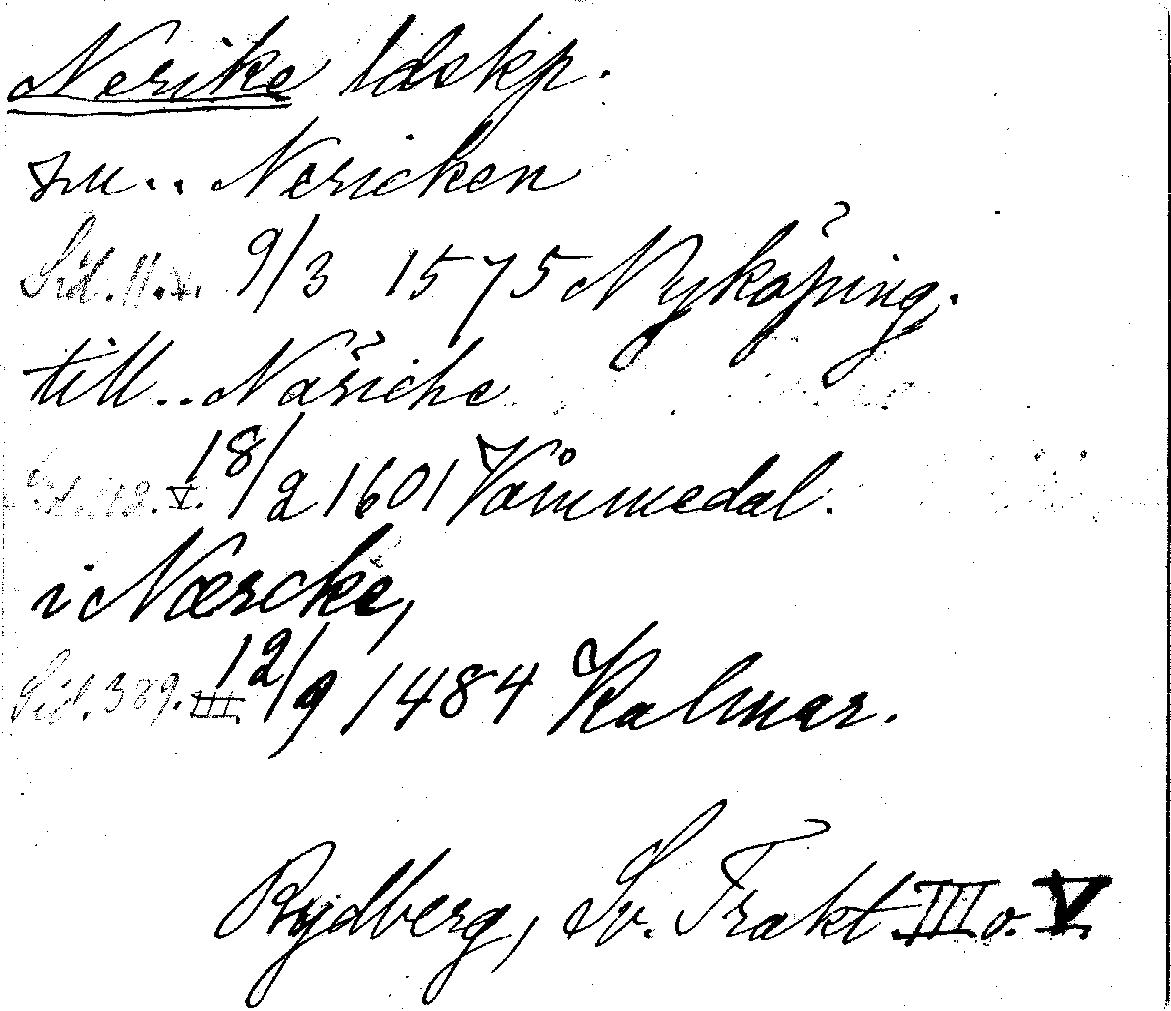 Nerike ldskp.
nu.. Nericken
Sid. 11. V. 9/3 1575 Nyköping.
till.. Näriche
V. 18/2 1601 Våmmedal.
i Nærcke,
Sid. 389. III 12/9 1484 Kalmar.
Rydberg, Sv. Trakt. III o. V.